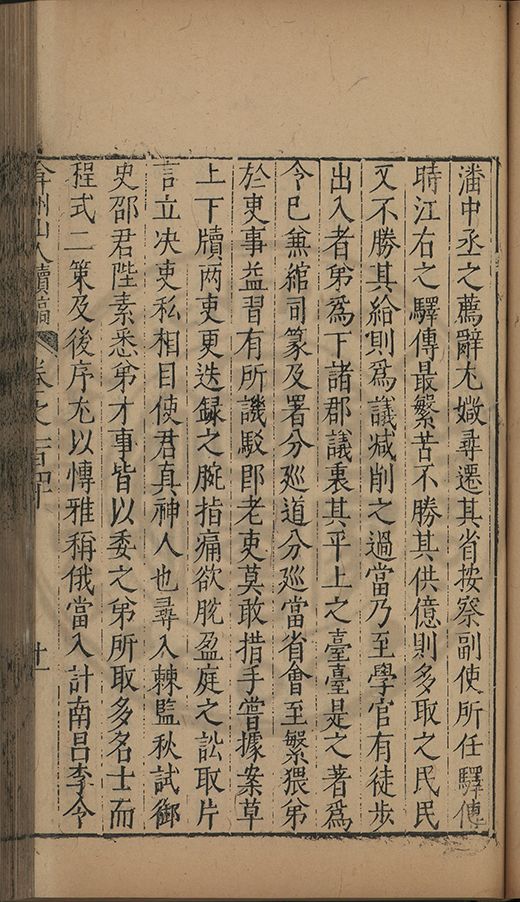 潘中丞之薦辭尤媺尋遷其省按察副使所任驛傳
時江右之驛傳最繁苦不勝其供億則多取之民民
又不勝其給則為議減削之過當乃至學官有徒步
出入者弟為下諸郡議裏其平上之臺臺是之著為
令已兼綰司篆及署分廵道分廵當省會至繁猥弟
於吏事益習有所譏駁卽老吏莫敢措手嘗據案草
上下牘兩吏更迭録之腕指痛欲脫盈庭之訟取片
言立决吏私相目使君真神人也尋入棘監秋試御
史邵君陛素悉弟才事皆以委之弟所取多名士而
程式二策及後序尤以慱雅稱俄當入計南昌李令
弇州山人續稿 卷之一百四十 十一